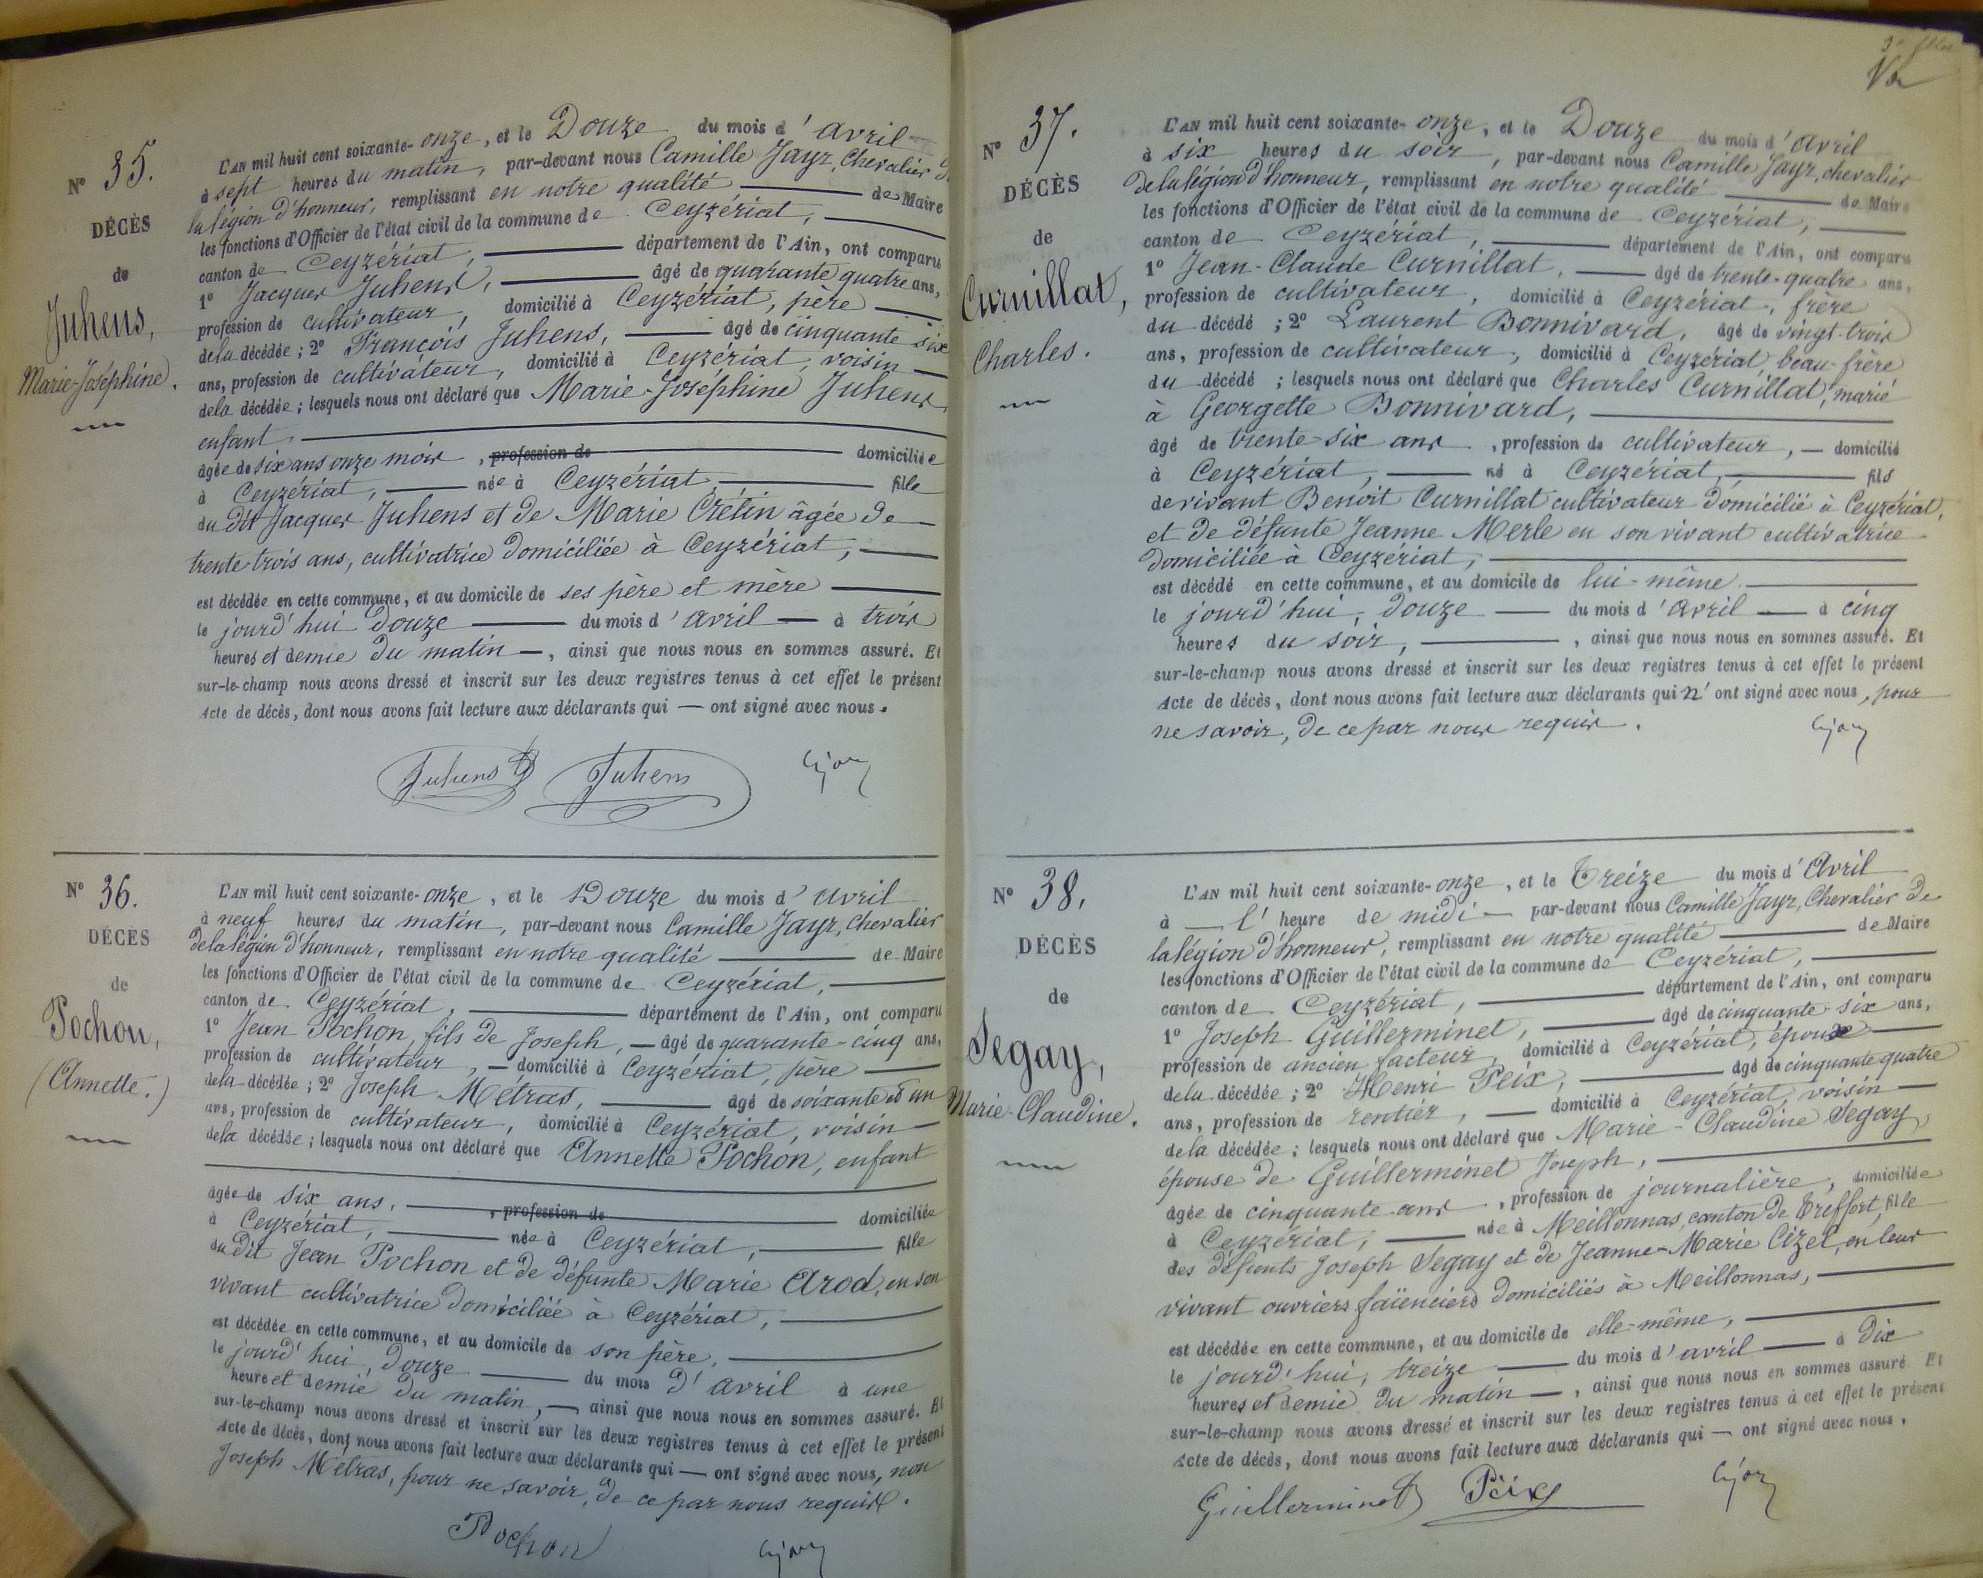 N° 35.
DÉCÈS
de
Juhens,
Marie-Joséphine.
L'AN mil huit cent soixante-onze, et le Douze du mois d'avril
à sept heures du matin, par-devant nous Camille Jayr, Chevalier de
la légion d'honneur, remplissant en notre qualité de Maire
les fonctions d'Officier de l'état civil de la commune de Ceyzériat,
canton de Ceyzériat, département de l'Ain, ont comparu
1° Jacques Juhens, âgé de quarante quatre ans,
profession de cultivateur, domicilié à Ceyzériat, père
de la décédée ; 2° François Juhens, âgé de cinquante six
ans, profession de cultivateur, domicilié à Ceyzériat, voisin
de la décédée ; lesquels nous ont déclaré que Marie-Joséphine Juhens
enfant,
âgée de six ans onze mois, profession de domiciliée
à Ceyzériat, née à Ceyzériat, fille
du dit Jacques Juhens et de Marie Crétin âgée de
trente-trois ans, cultivatrice domiciliée à Ceyzériat,
est décédée en cette commune, et au domicile de ses père et mère
le jourd'hui douze du mois d'avril à trois
heures et demie du matin, ainsi que nous nous en sommes assuré. Et
sur-le-champ nous avons dressé et inscrit sur les deux registres tenus à cet effet le présent
Acte de décès, dont nous avons fait lecture aux déclarants qui — ont signé avec nous.
Juhens Juhens
N° 36.
DÉCÈS
de
Pochon,
(Annette.)
L'AN mil huit cent soixante-onze, et le Douze du mois d'avril
à neuf heures du matin, par-devant nous Camille Jayr, Chevalier
de la légion d'honneur, remplissant en notre qualité de Maire
les fonctions d'Officier de l'état civil de la commune de Ceyzériat,
canton de Ceyzériat, département de l'Ain, ont comparu
1° Jean Pochon, fils de Joseph, — âgé de quarante-cinq ans,
profession de cultivateur, — domicilié à Ceyzériat, père
de la décédée ; 2° Joseph Métras, âgé de soixante et un
ans, profession de cultivateur, domicilié à Ceyzériat, voisin
de la décédée ; lesquels nous ont déclaré que Annette Pochon, enfant
âgée de six ans, profession de domiciliée
à Ceyzériat, née à Ceyzériat, fille
du dit Jean Pochon et de défunte Marie Arod, en son
vivant cultivatrice domiciliée à Ceyzériat,
est décédée en cette commune, et au domicile de son père,
le jourd'hui, douze du mois d'avril à une
heure et demie du matin, — ainsi que nous nous en sommes assuré. Et
sur-le-champ nous avons dressé et inscrit sur les deux registres tenus à cet effet le présent
Acte de décès, dont nous avons fait lecture aux déclarants qui — ont signé avec nous, non
Joseph Métras, pour ne savoir, de ce par nous requis.
Pochon
N° 37.
DÉCÈS
de
Curnillat,
Charles.
L'AN mil huit cent soixante-onze, et le Douze du mois d'avril
à six heures du soir, par-devant nous Camille Jayr, chevalier
de la légion d'honneur, remplissant en notre qualité de Maire
les fonctions d'Officier de l'état civil de la commune de Ceyzériat,
canton de Ceyzériat, département de l'Ain, ont comparu
1° Jean-Claude Curnillat, âgé de trente-quatre ans,
profession de cultivateur, domicilié à Ceyzériat, frère
du décédé ; 2° Laurent Bonnivard, âgé de vingt-trois
ans, profession de cultivateur, domicilié à Ceyzériat, beau-frère
du décédé ; lesquels nous ont déclaré que Charles Curnillat, marié
à Georgette Bonnivard,
âgé de trente-six ans, profession de cultivateur, — domicilié
à Ceyzériat, né à Ceyzériat, fils
de vivant Benoit Curnillat cultivateur domicilié à Ceyzériat,
et de défunte Jeanne Merle en son vivant cultivatrice
domiciliée à Ceyzériat,
est décédé en cette commune, et au domicile de lui-même
le jourd'hui, douze du mois d'avril à cinq
heures du soir, ainsi que nous nous en sommes assuré. Et
sur-le-champ nous avons dressé et inscrit sur les deux registres tenus à cet effet le présent
Acte de décès, dont nous avons fait lecture aux déclarants qui n'ont signé avec nous, pour
ne savoir, de ce par nous requis.
N° 38.
DÉCÈS
de
Segay,
Marie-Claudine.
L'AN mil huit cent soixante-onze, et le Treize du mois d'Avril
à — l'heure de midi — par-devant nous Camille Jayr, Chevalier de
la légion d'honneur, remplissant en notre qualité de Maire
les fonctions d'Officier de l'état civil de la commune de Ceyzériat,
canton de Ceyzériat, département de l'Ain, ont comparu
1° Joseph Guillerminet, âgé de cinquante-six ans,
profession de ancien facteur, domicilié à Ceyzériat, époux
de la décédée ; 2° Henri Peix, âgé de cinquante quatre
ans, profession de rentier, — domicilié à Ceyzériat, voisin
de la décédée ; lesquels nous ont déclaré que Marie-Claudine Segay,
épouse de Guillerminet Joseph,
âgée de cinquante ans, profession de journalière, domiciliée
à Ceyzériat, née à Meillonnas, canton de Treffort, fille
des défunts Joseph Segay et de Jeanne-Marie Cizel, en leur
vivant ouvriers faïenciers domiciliés à Meillonnas,
est décédée en cette commune, et au domicile de elle-même,
le jourd'hui, treize du mois d'avril à dix
heures et demie du matin —, ainsi que nous nous en sommes assuré. Et
sur-le-champ nous avons dressé et inscrit sur les deux registres tenus à cet effet le présent
Acte de décès, dont nous avons fait lecture aux déclarants qui — ont signé avec nous.
Guillerminet Peix